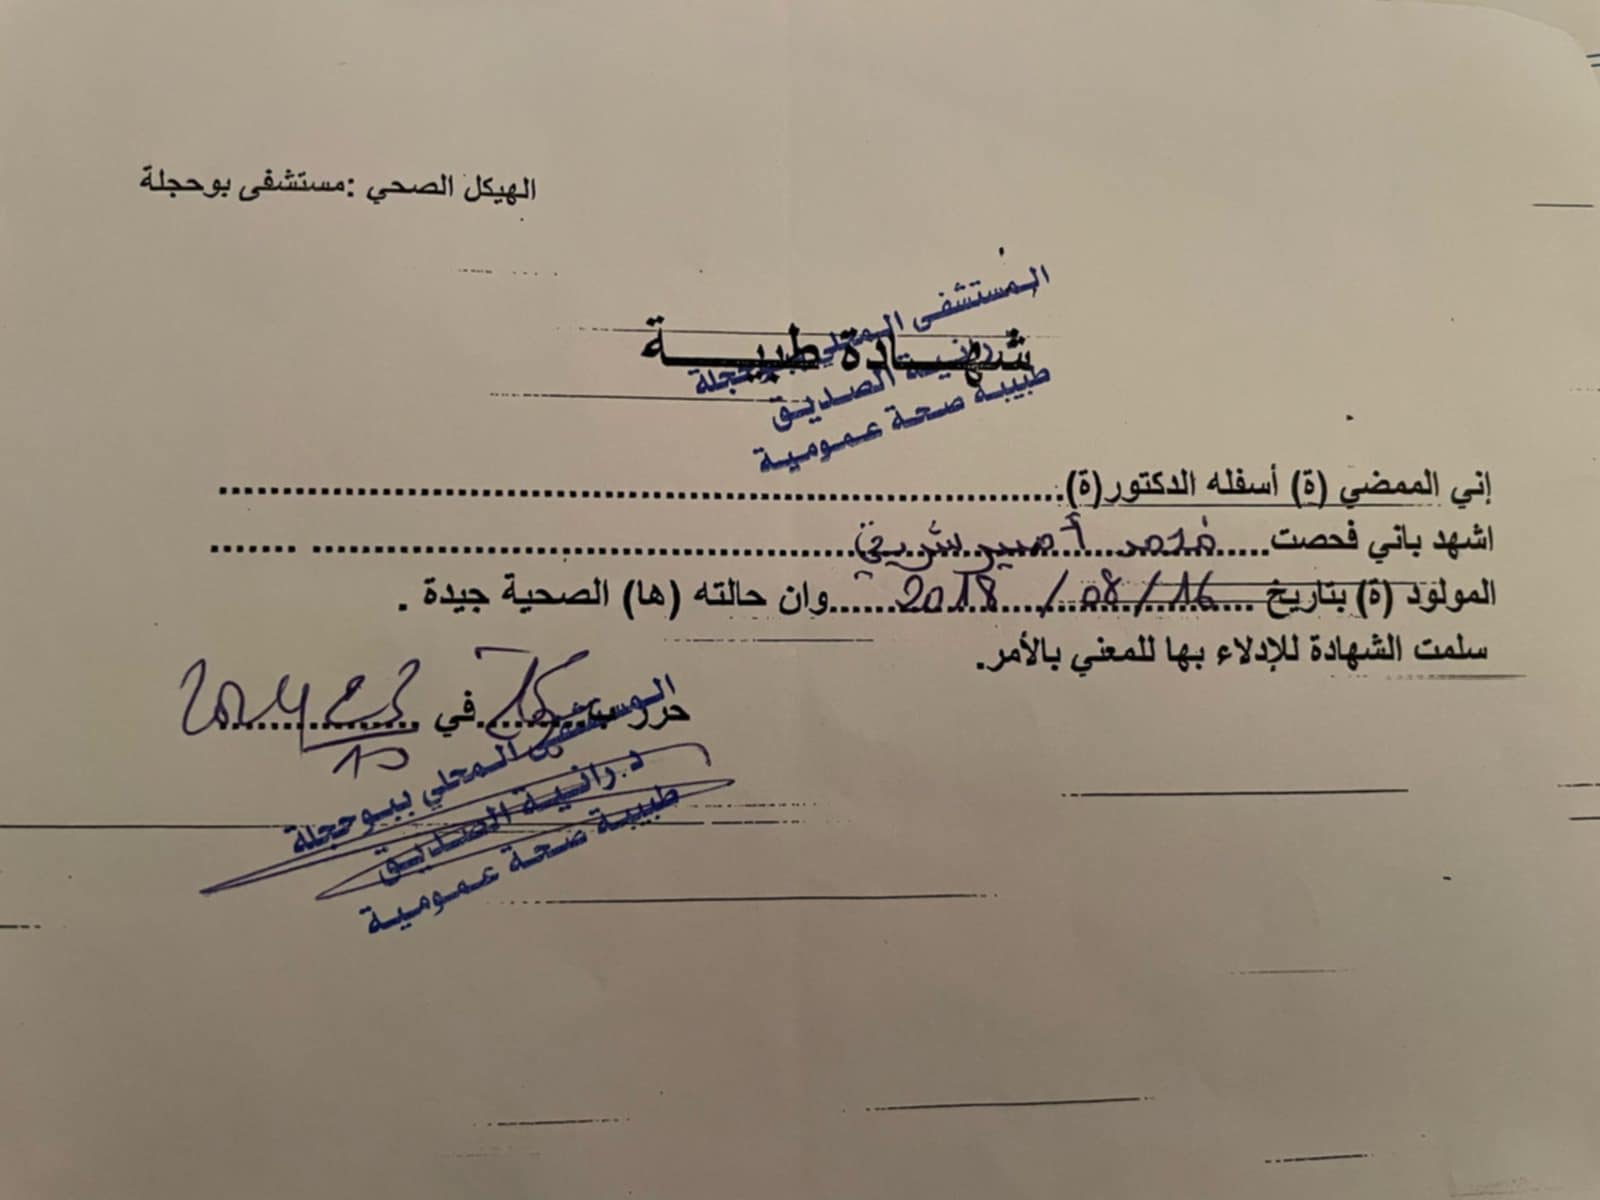 الهيكل الصحي :مستشفى بوحجلة
شهـــادة طبيـــــة
المستشفى المحلي ببوحجلة
رانية الصديق
طبيبة صحة عمومية
إني الممضي (ة) أسفله الدكتور(ة)........................
اشهد باني فحصت..... محمد أمير شريفي ........................
المولود (ة) بتاريخ ... 16/08/2018 ......وان حالته (ها) الصحية جيدة .
سلمت الشهادة للإدلاء بها للمعني بالأمر.
حرر ب........في
المستشفى المحلي ببوحجلة
د.رانية الصديق
طبيبة صحة عمومية